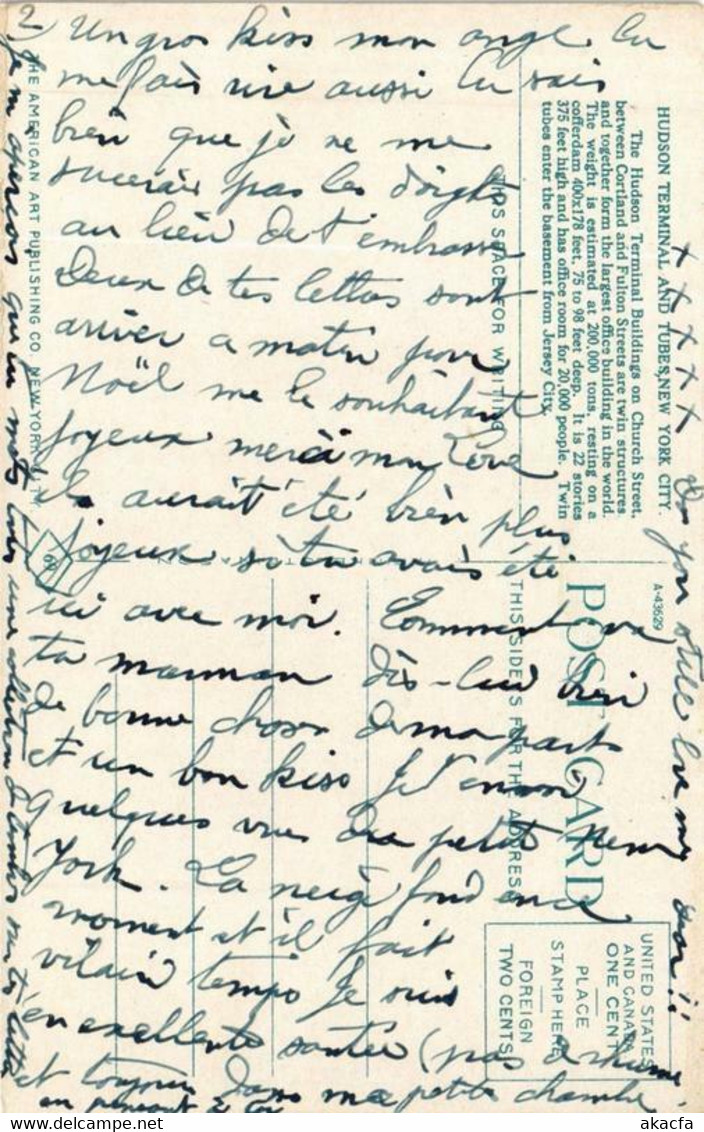 2
Un gros kiss mon ange tu
me fais rire aussi tu sais
bien que je ne me
sucerais pas les doigts
au lieu de t'embrasser
Deux de tes lettres sont
arriver ce matin pour
Noël me le souhaitant
joyeux merci mon Love
il aurait été bien plus
joyeux si tu avais été
ici avec moi. Comment va
ta maman dis-lui bien
de bonne choses de ma part
et un bon kiss Je t'envoi
quelques vues du petit New
York. La neige fond en ce
moment et il fait
vilain temps Je suis
en excellente santée (pas de rhume
et toujours dans ma petite chambre
en pensant à toi
Je m'apercois que tu mets toute une collection de timbres sur ta lettre
x x x x x Do you still love my dear!!
HUDSON TERMINAL AND TUBES, NEW YORK CITY.
The Hudson Terminal Buildings on Church Street,
between Cortland and Fulton Streets are twin structures
and together form the largest office building in the world.
The weight is estimated at 200,000 tons, resting on a
cofferdam 400x178 feet, 75 to 98 feet deep. It is 22 stories
375 feet high and has office room for 20,000 people. Twin
tubes enter the basement from Jersey City.
THIS SPACE FOR WRITING
A-43629
POST CARD
THIS SIDE IS FOR THE ADDRESS
UNITED STATES
AND CANADA
ONE CENT
PLACE
STAMP HERE
FOREIGN
TWO CENTS
THE AMERICAN ART PUBLISHING CO. NEW YORK CITY.
akacfa
www.delcampe.net